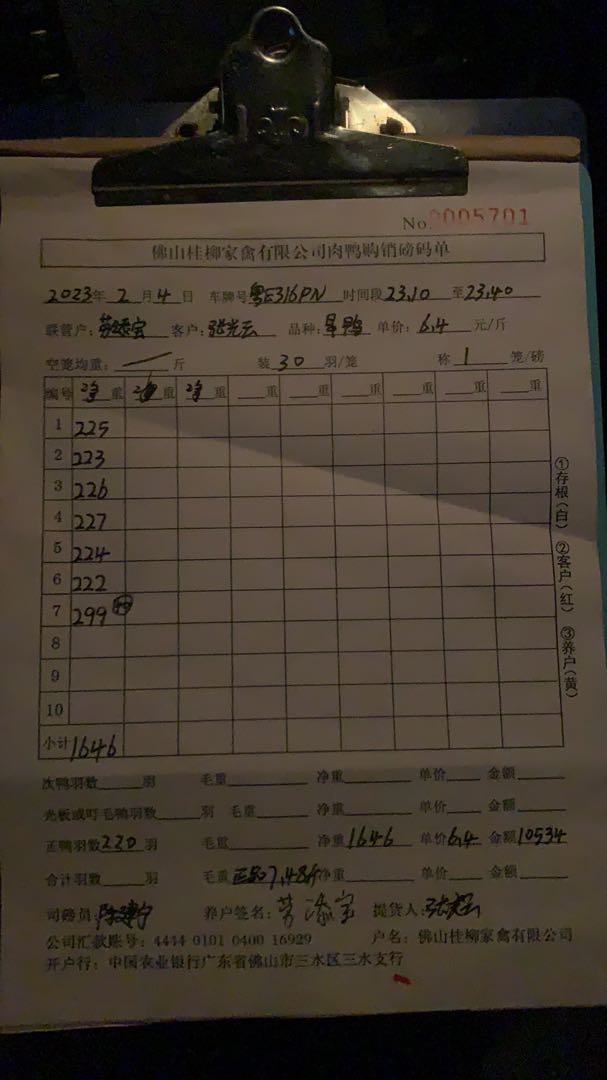 No.0005701
佛山桂柳家禽有限公司肉鸭购销磅码单
2023年 2 月 4 日 车牌号粤E316PN 时间段23,10 至23,40
联营户:劳添宝 客户:张光云 品种:旱鸭 单价:6,4 元/斤
空笼均重: 斤 装 30 羽/笼 称 1 笼/磅
编号 净重 净重 净重 重 重 重 重 重 重
1 225
2 223
3 226
4 227
5 224
6 222
7 299
8
9
10
小计 1646
①存根(白) ②客户(红) ③养户(黄)
次鸭羽数 羽 毛重 净重 单价 金额
光板或叮毛鸭羽数 羽 毛重 净重 单价 金额
正鸭羽数220 羽 毛重 净重1646 单价6,4 金额10534
合计羽数 羽 毛重 7,48斤 净重 单价 金额
司磅员: 养户签名:劳添宝 提货人:张光云
公司汇款账号:4444 0101 0400 16929 户名:佛山桂柳家禽有限公司
开户行:中国农业银行广东省佛山市三水区三水支行